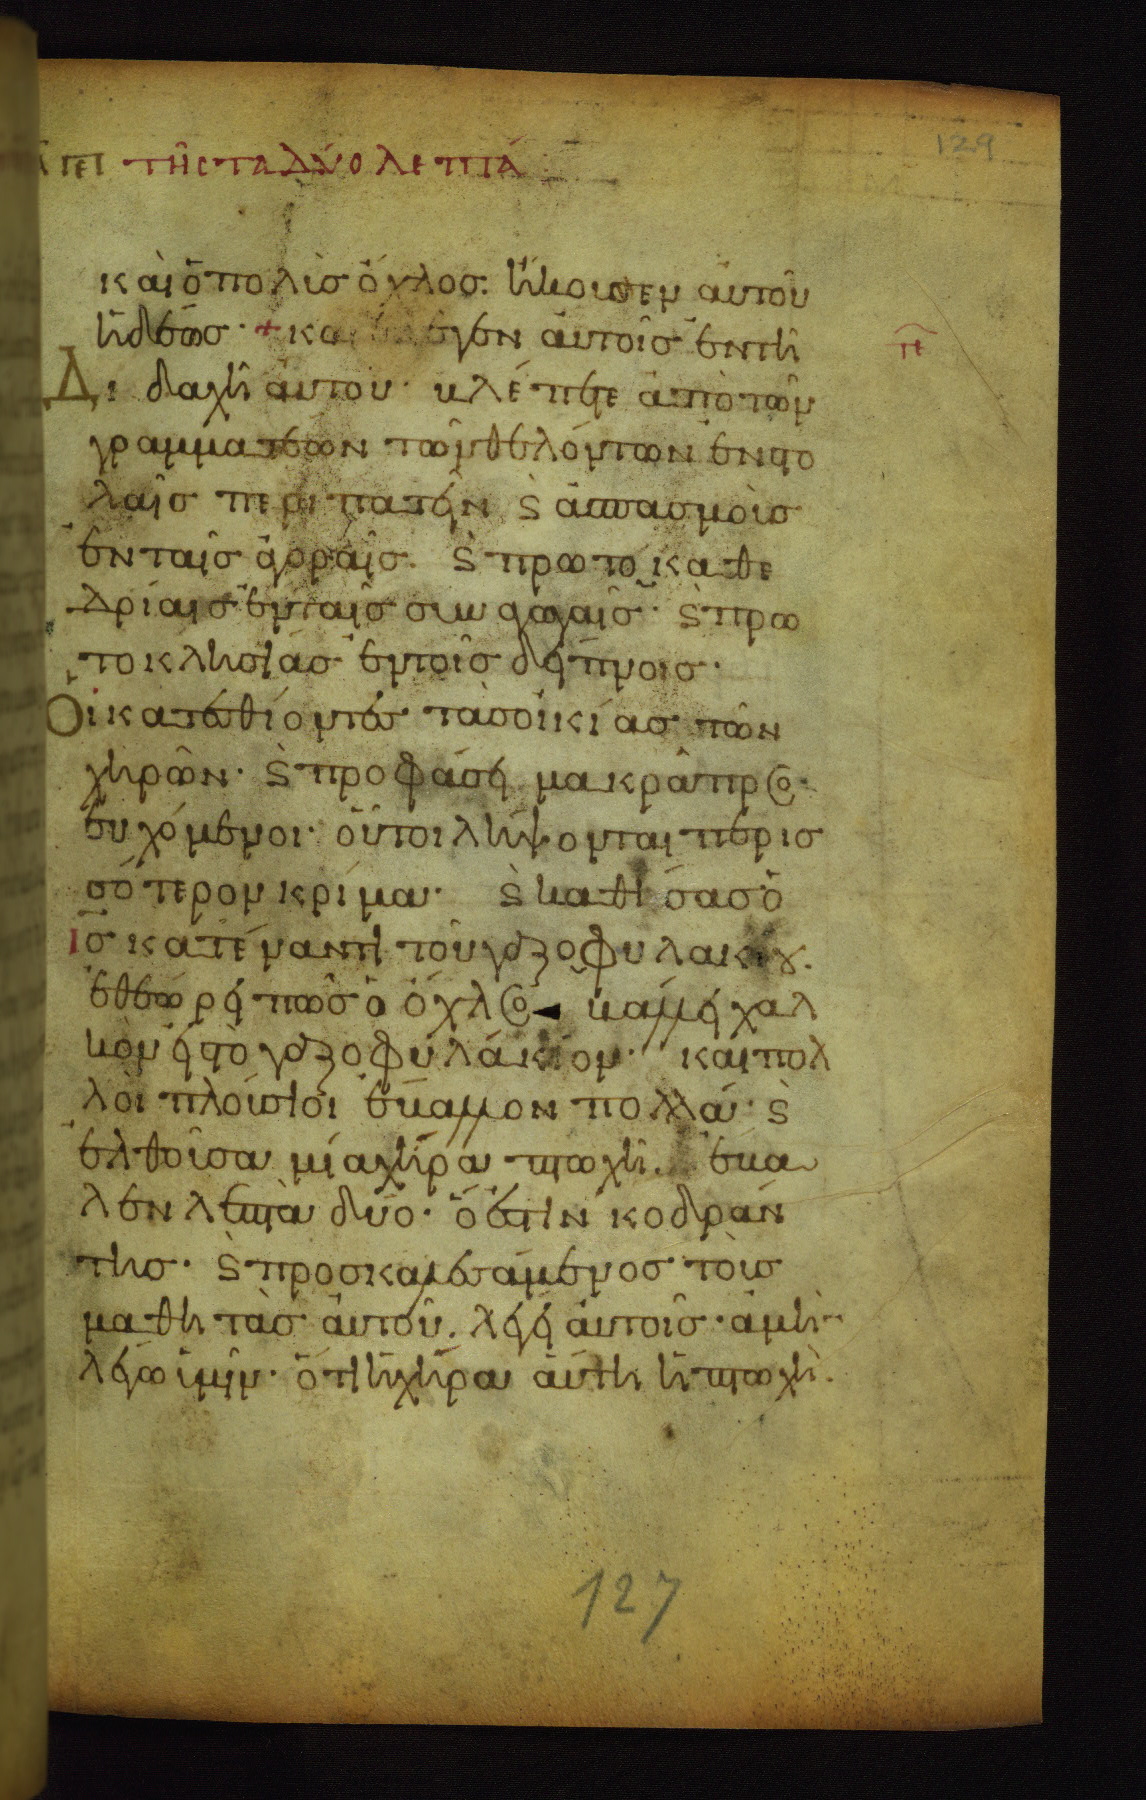 129
πεΙ τῆς τα δύο λεπτά
καὶ ὁ πολὺσ ὄχλοσ. ἤκουσεν αὐτοῦ
ἡδέωσ· + και ἔλεγεν αὐτοῖσ ἐν τῆ
πε
Διδαχῆ αὐτοῦ· βλέπετε ἀπὸ τῶν
γραμματέων τῶν θελόντων ἐν στο
λαῖσ περιπατεῖν ϛ ἀσπασμοὺσ
ἐν ταῖσ ἀγοραῖσ. ϛ πρωτοκαθε
δρίαισ ἐν ταῖσ συναγωγαῖσ· ϛ πρω
τοκλησίασ ἐν τοῖσ δείπνοισ·
Οἱ κατεσθίοντεσ τὰσ οἰκίασ τῶν
χηρῶν· ϛ προφάσει μακρᾶ προσ
ευχόμενοι· οὗτοι λήψονται περισ
σότερον κρίμα· ϛ καθίσασ ὁ
ισ κατέναντι τοῦ γαζοφυλακίου.
ἐθεώρει πῶσ ὁ ὄχλοσ βάλλει χαλ
κὸν εἰσ τὸ γαζοφυλάκιον· καὶ πολ
λοὶ πλούσιοι ἔβαλλον πολλά· ϛ
ἐλθοῦσα μία χήρα πτωχὴ. ἔβα
λεν λεπτὰ δύο· ὅ ἐστιν κοδράν
τησ· ϛ προσκαλεσάμενοσ τοὺσ
μαθητὰσ αὐτοῦ. λέγει αὐτοῖσ· ἀμὴν
λέγω ὑμῖν· ὅτι ἡ χήρα αὕτη ἡ πτωχὴ.
127